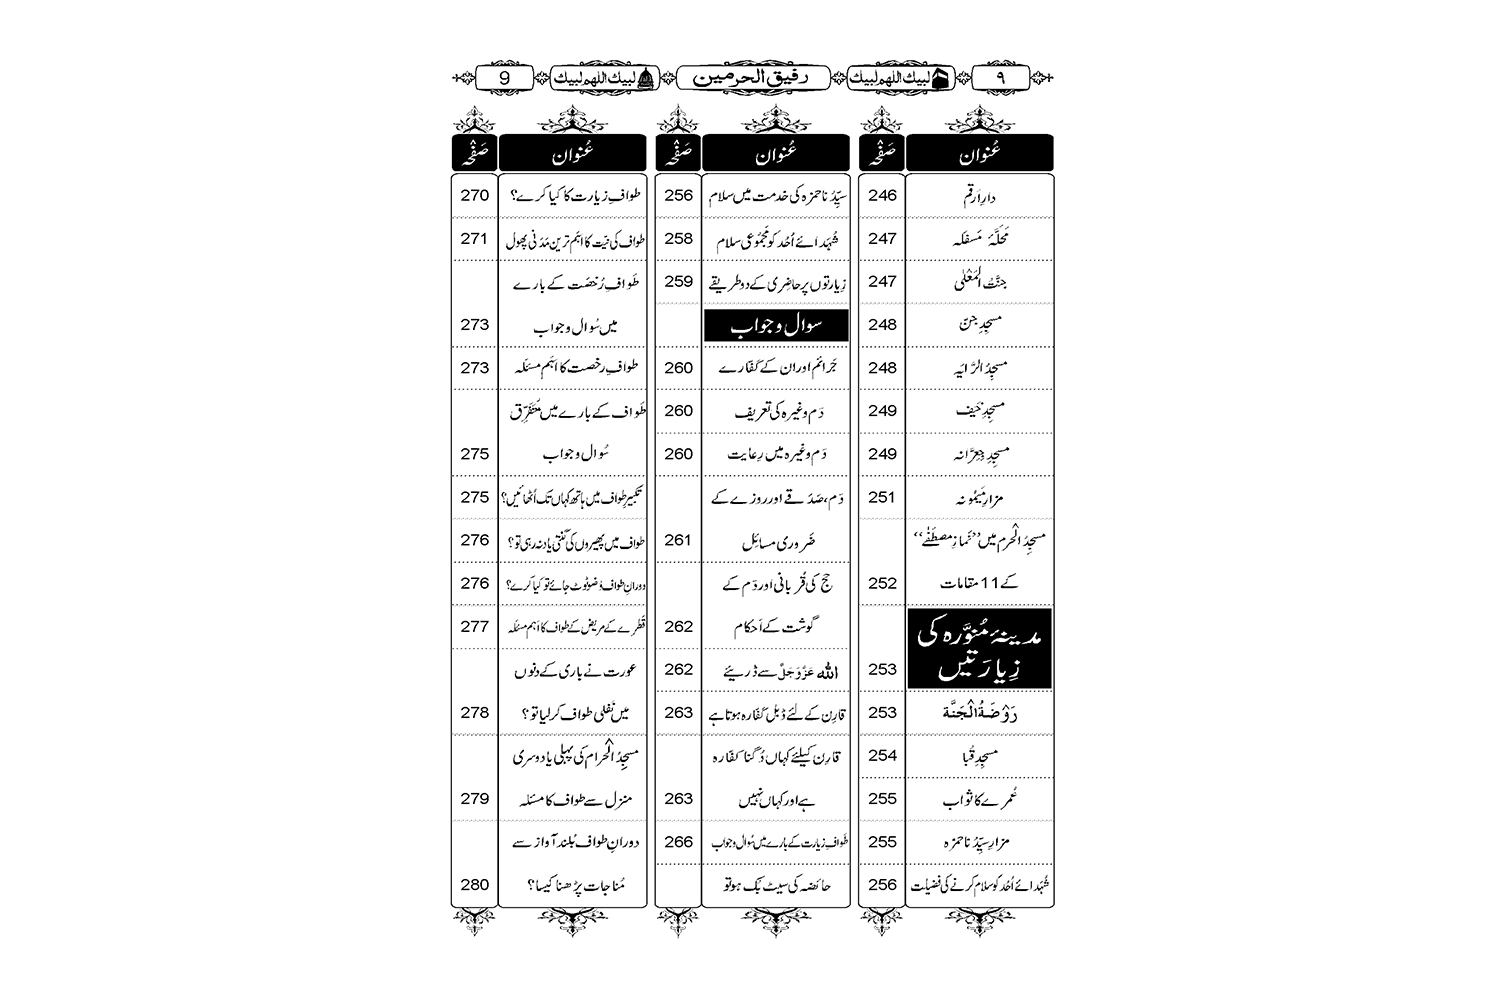 ٩ لبيك اللهم لبيك رفیق الحرمین لبيك اللهم لبيك 9
عُنوان صَفْحہ
دارِ اَرقم 246
مَحَلَّۂ مَسفَلہ 247
جنَّتُ الْمَعْلٰی 247
مسجِدِ جِنّ 248
مسجِدُ الرَّایَہ 248
مسجِدِ خَیف 249
مسجِدِ جِعِرَّانہ 249
مزارِ مَیمُونہ 251
مسجِدُ الْحرم میں ”نَمازِ مصطَفٰے“
کے 11 مقامات 252
مدینۂ مُنوَّرہ کی
زِیارَتیں 253
رَوْضَۃُ الْجَنَّۃ 253
مسجِدِ قُبا 254
عُمرے کا ثواب 255
مزارِ سیِّدُنا حمزہ 255
شُہَدائے اُحُد کو سلام کرنے کی فضیلت 256
عُنوان صَفْحہ
سیِّدُنا حمزہ کی خدمت میں سلام 256
شُہَدائے اُحُد کو مَجمُوعی سلام 258
زِیارتوں پر حاضِری کے دو طریقے 259
سوال و جواب
جَرائم اور ان کے کَفّارے 260
دَم وغیرہ کی تعریف 260
دَم وغیرہ میں رِعایت 260
دَم، صَدَقے اور روزے کے
ضَروری مسائِل 261
حج کی قُربانی اور دَم کے
گوشت کے اَحکام 262
اللہ عَزَّوَجَلَّ سے ڈریئے 262
قارِن کے لئے ڈبل کَفّارہ ہوتا ہے 263
قارِن کیلئے کہاں دُگنا کفّارہ
ہے اور کہاں نہیں 263
طَوافِ زیارت کے بارے میں سُوال وجواب 266
حائضہ کی سیٹ بُک ہو تو
عُنوان صَفْحہ
طوافِ زیارت کا کیا کرے؟ 270
طواف کی نیّت کا اَہَم ترین مَدَنی پھول 271
طَوافِ رُخصَت کے بارے
میں سُوال و جواب 273
طوافِ رخصت کا اَہَم مسئلہ 273
طَواف کے بارے میں مُتَفَرِّق
سُوال و جواب 275
تکبیرِ طواف میں ہاتھ کہاں تک اُٹھائیں؟ 275
طواف میں پھیروں کی گنتی یاد نہ رہی تو؟ 276
دورانِ طواف وُضو ٹوٹ جائے تو کیا کرے؟ 276
قَطرے کے مریض کے طواف کا اَہم مسئلہ 277
عورت نے باری کے دنوں
میں نَفلی طواف کر لیا تو؟ 278
مسجِدُ الْحرام کی پہلی یا دوسری
منزل سے طواف کا مسئلہ 279
دورانِ طواف بُلند آواز سے
مُناجات پڑھنا کیسا؟ 280